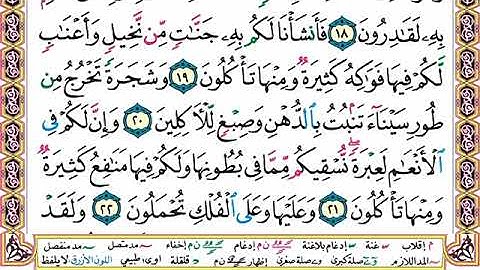 بِهِۦ لَقَٰدِرُونَ ١٨ فَأَنشَأْنَا لَكُم بِهِۦ جَنَّٰتٍ مِّن نَّخِيلٍ وَأَعْنَٰبٍ
لَّكُمْ فِيهَا فَوَٰكِهُ كَثِيرَةٌ وَمِنْهَا تَأْكُلُونَ ١٩ وَشَجَرَةً تَخْرُجُ مِن
طُورِ سَيْنَآءَ تَنۢبُتُ بِٱلدُّهْنِ وَصِبْغٍ لِّلْءَاكِلِينَ ٢٠ وَإِنَّ لَكُمْ فِى
ٱلْأَنْعَٰمِ لَعِبْرَةً نُّسْقِيكُم مِّمَّا فِى بُطُونِهَا وَلَكُمْ فِيهَا مَنَٰفِعُ كَثِيرَةٌ
وَمِنْهَا تَأْكُلُونَ ٢١ وَعَلَيْهَا وَعَلَى ٱلْفُلْكِ تُحْمَلُونَ ٢٢ وَلَقَدْ
م إقلاب غنة إدغام بلاغنة ن م إدغام ن م إخفاء مد متصل مد منفصل
المد اللازم صلة كبرى صلة صغرى إظهار ن م قلقلة مد طبيعي اللون الأزرق لا يلفظ